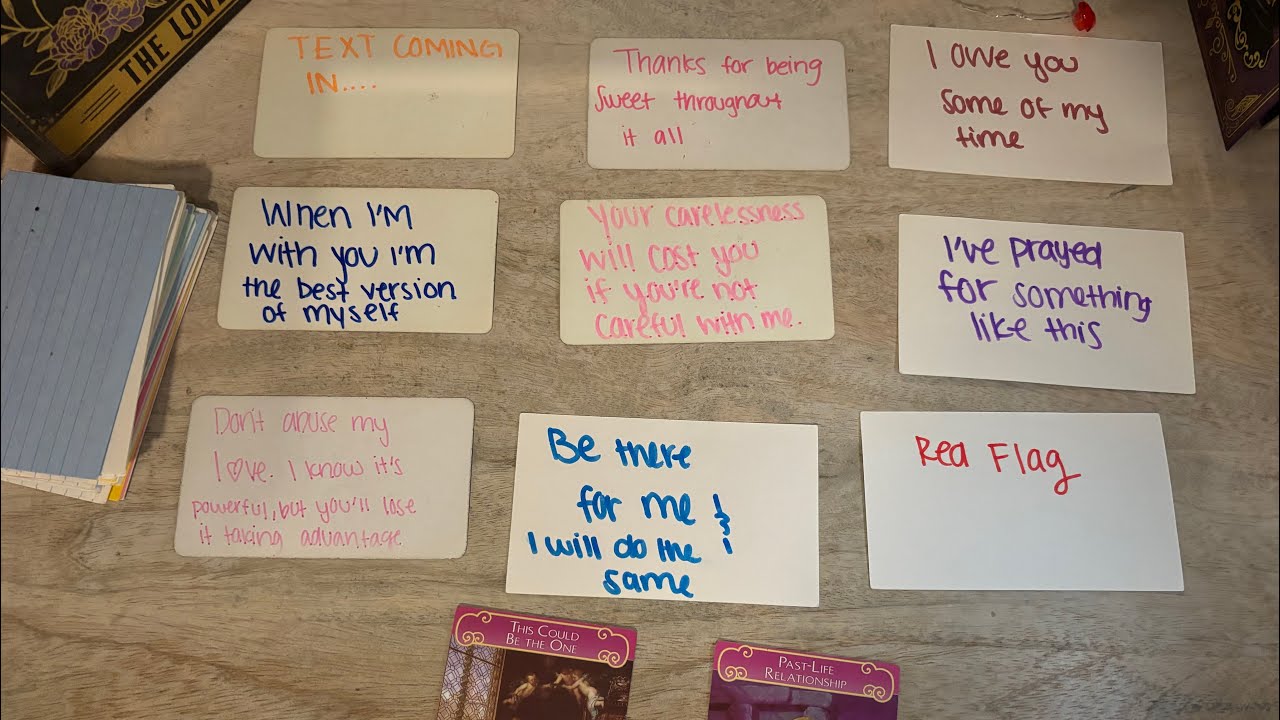 THE LOV
TEXT COMING
IN....
Thanks for being
sweet throughout
it all
I owe you
some of my
time
When I'M
with you I'M
the best version
of myself
Your carelessness
will cost you
if you're not
careful with me.
I've prayed
for something
like this
Don't abuse my
love. I know it's
powerful, but you'll lose
it taking advantage
Be there
for me &
I will do the
same
Red Flag
THIS COULD
BE THE ONE
PAST-LIFE
RELATIONSHIP